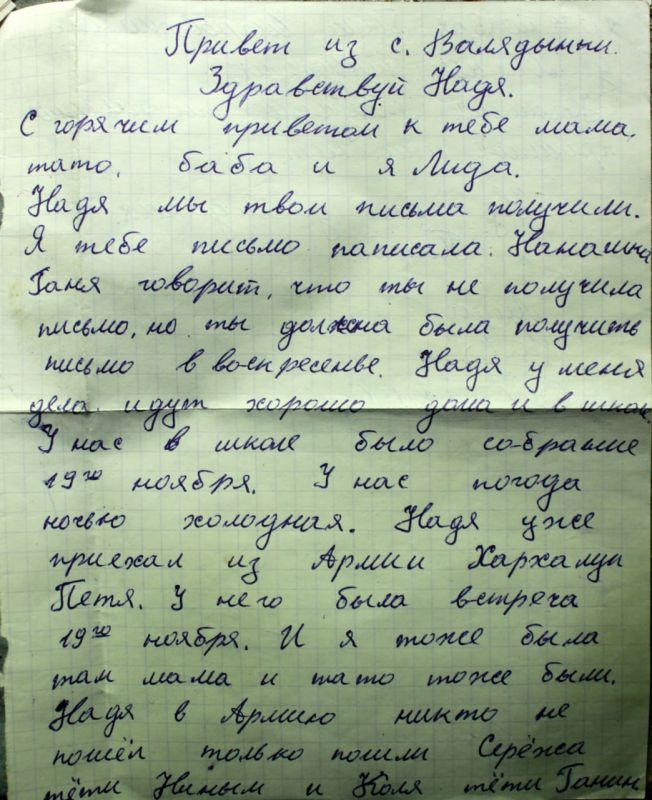 Привет из с. Валядынки.
Здравствуй Надя.
С горячим приветом к тебе мама,
тато, баба и я Лида.
Надя мы твои письма получили.
Я тебе письмо написала. Нанашка
Ганя говорит, что ты не получила
письмо, но ты должна была получить
письмо в воскресенье. Надя у меня
дела идут хорошо дома и в школе.
У нас в школе было со-брание
19го ноября. У нас погода
ночью холодная. Надя уже
приехал из Армии Хархалуп
Петя. У него была встреча
19го ноября. И я тоже была
там мама и тато тоже были.
Надя в Армию никто не
пошёл только пошли Серёжа
тёти Ниным и Коля тёти Ганин